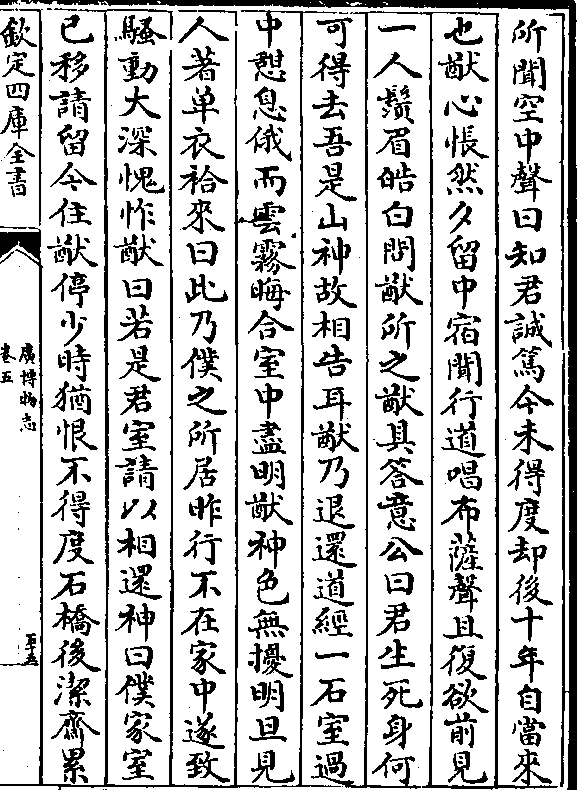 所聞空中聲曰知君誠篤今未得度却後十年自當來
也猷心悵然夕留中宿聞行道唱布薩聲且復欲前見
一人鬚眉皓白問猷所之猷具答意公曰君生死身何
可得去吾是山神故相告耳猷乃退還道經一石室過
中憇息俄而雲霧晦合室中盡明猷神色無擾明旦見
人著单衣袷來曰此乃僕之所居昨行不在家中遂致
騷動大深愧怍猷曰若是君室請以相還神曰僕家室
已移請留令住猷停少時猶恨不得度石橋後潔齋累
欽定四庫全書
廣博物志
卷五